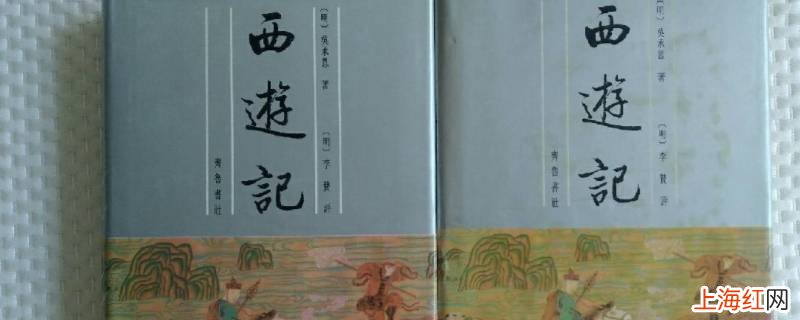 西遊記
〔明〕吳承恩 著
〔明〕李贄 評
齊魯書社
西遊記
〔明〕吳承恩 著
〔明〕李贄 評
齊魯書社
上海红网